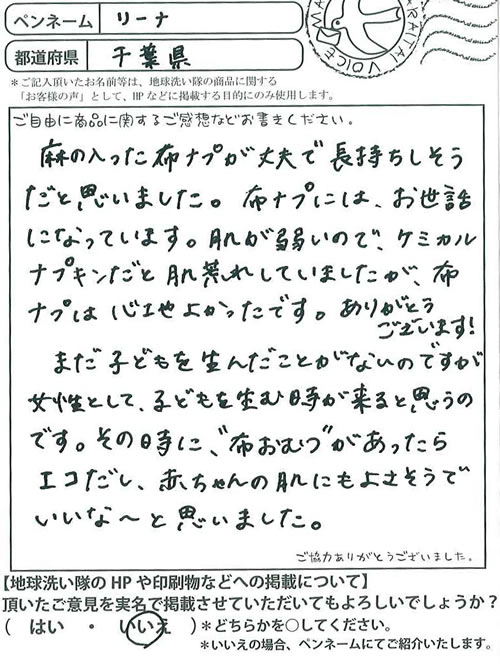 ペンネーム リーナ
都道府県 千葉県
＊ご記入頂いたお名前等は、地球洗い隊の商品に関する
「お客様の声」として、HPなどに掲載する目的にのみ使用します。
ご自由に商品に関するご感想などお書きください。
麻の入った布ナプが丈夫で長持ちしそう
だと思いました。布ナプには、お世話
になっています。肌が弱いので、ケミカル
ナプキンだと肌荒れしていましたが、布
ナプは心地よかったです。ありがとう
ございます!
まだ子どもを生んだことがないのですが
女性として、子どもを生む時が来ると思うの
です。その時に、“布おむつ”があったら
エコだし、赤ちゃんの肌にもよさそうで
いいな〜と思いました。
ご協力ありがとうございました。
【地球洗い隊のHPや印刷物などへの掲載について】
頂いたご意見を実名で掲載させていただいてもよろしいでしょうか？
（ はい ・ いいえ ）＊どちらかを○してください。
＊いいえの場合、ペンネームにてご紹介いたします。